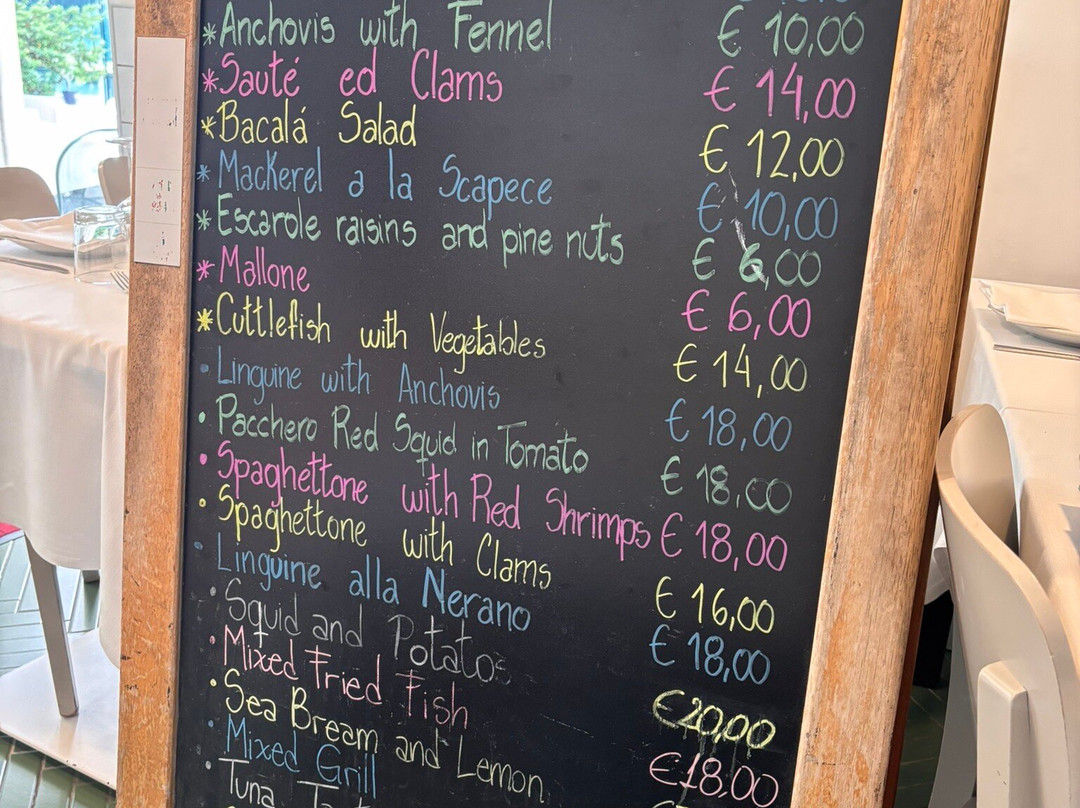 *Anchovis with Fennel € 10,00
*Sauté ed Clams € 14,00
*Bacalá Salad € 12,00
*Mackerel a la Scapece € 10,00
*Escarole raisins and pine nuts € 6,00
*Mallone € 6,00
*Cuttlefish with Vegetables € 14,00
• Linguine with Anchovis € 18,00
• Pacchero Red Squid in Tomato € 18,00
• Spaghettone with Red Shrimps € 18,00
• Spaghettone with Clams € 16,00
• Linguine alla Nerano € 18,00
• Squid and Potatos €20,00
• Mixed Fried Fish €18,00
• Sea Bream and Lemon
• Mixed Grill
• Tuna